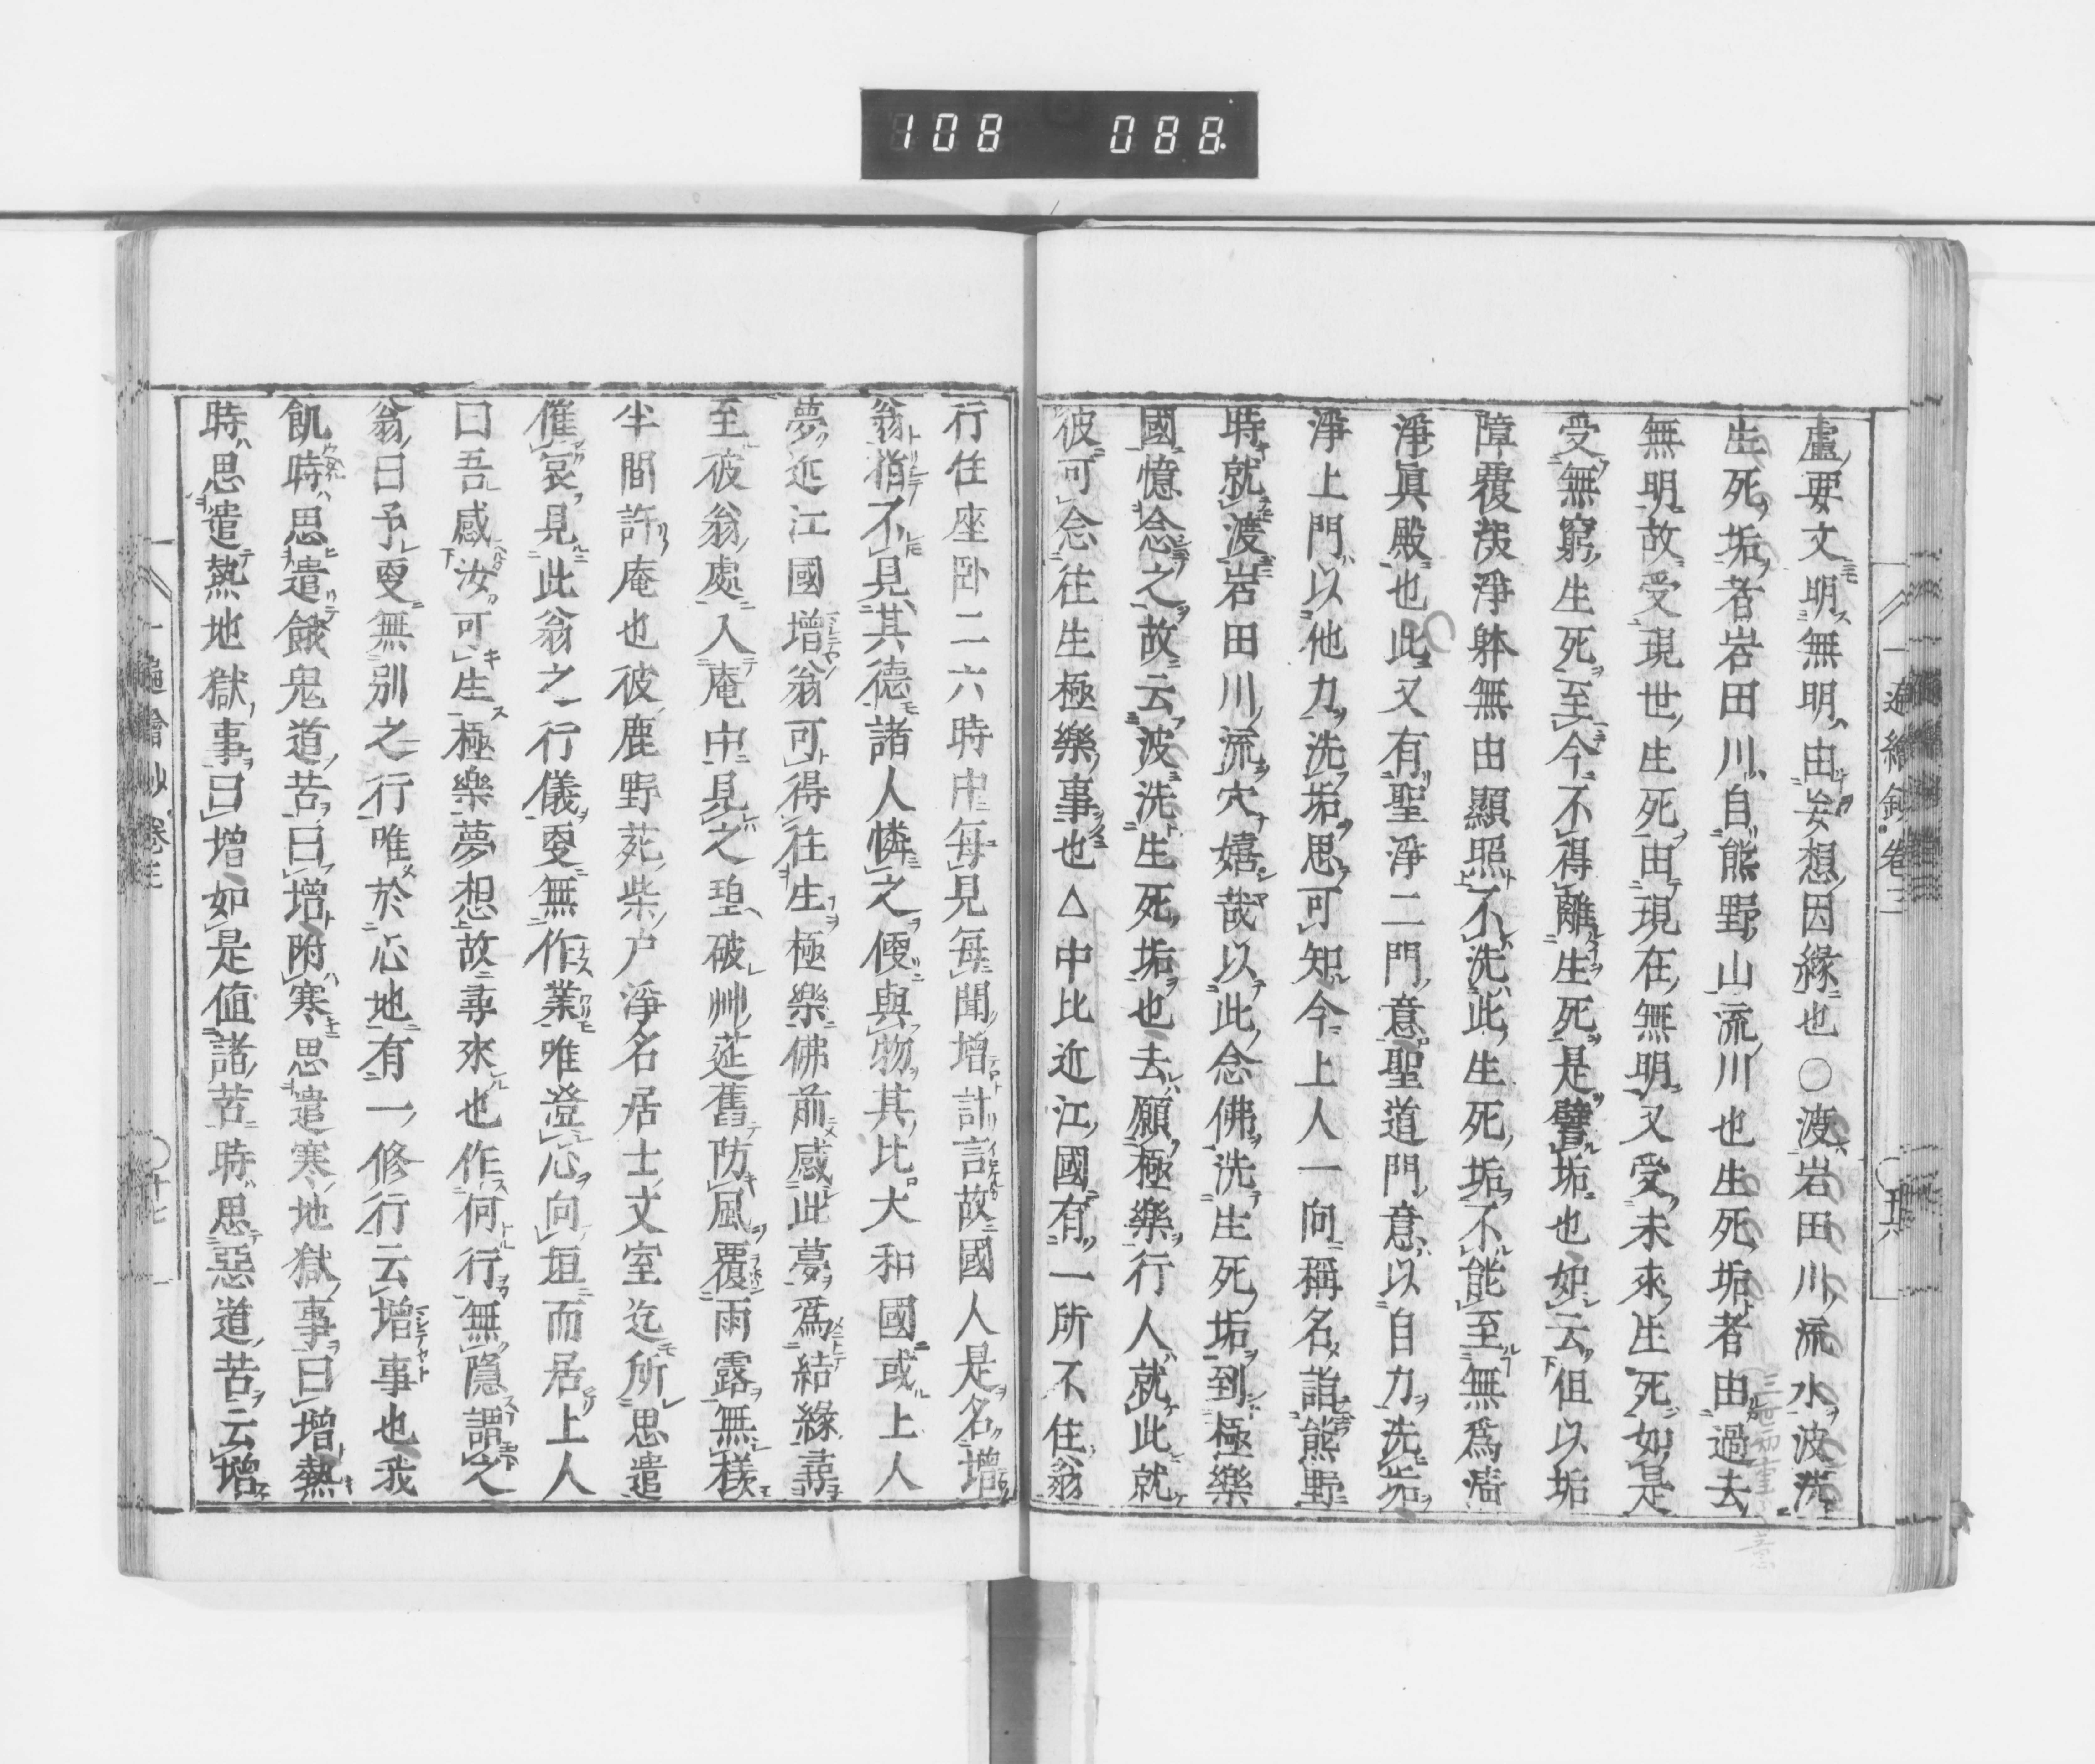 108 088
一遍繪鈔卷三
盧要文明無明由妄想因緣也○渡岩田川流水波洗
生死垢者岩田川自熊野山流川也生死垢者由過去
無明故受現世生死由現在無明又受未來生死如是
受無窮生死至今不得離生死是譬垢也如云但以垢
障覆深淨躰無由顯照不洗此生死垢不能至無爲清
淨眞殿也此又有聖淨二門意聖道門意以自力洗垢
淨土門以他力洗垢思可知今上人一向稱名詣熊野
時就渡岩田川流穴嬉哉以此念佛洗生死垢到極樂
國憶念之故云波洗生死垢也去願極樂行人就此就
彼可念往生極樂事也△中比近江國有一所不住翁
行住座臥二六時中每見每聞增計言故國人是名增
翁指不見其德諸人憐之便與物其比大和國或上人
夢近江國增翁可得往生極樂佛前感此夢爲結緣尋
至彼翁處入庵中見之壁破艸莚舊防風覆雨露無樣
半間許庵也彼鹿野苑柴户淨名居士文室迄所思遣
催哀見此翁之行儀更無作業唯澄心向垣而居上人
曰吾感汝可生極樂夢想故尋來也作何行無隱謂之
翁曰予更無別之行唯於心地有一修行云增事也我
飢時思遣餓鬼道苦曰增附寒思遣寒地獄事曰增熱
時思遣熱地獄事曰增如是値諸苦時思惡道苦云增
一遍繪鈔卷三
十七